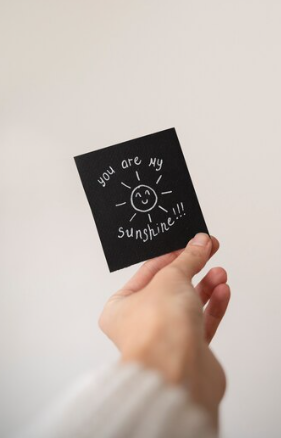 you are my
sunshine!!!